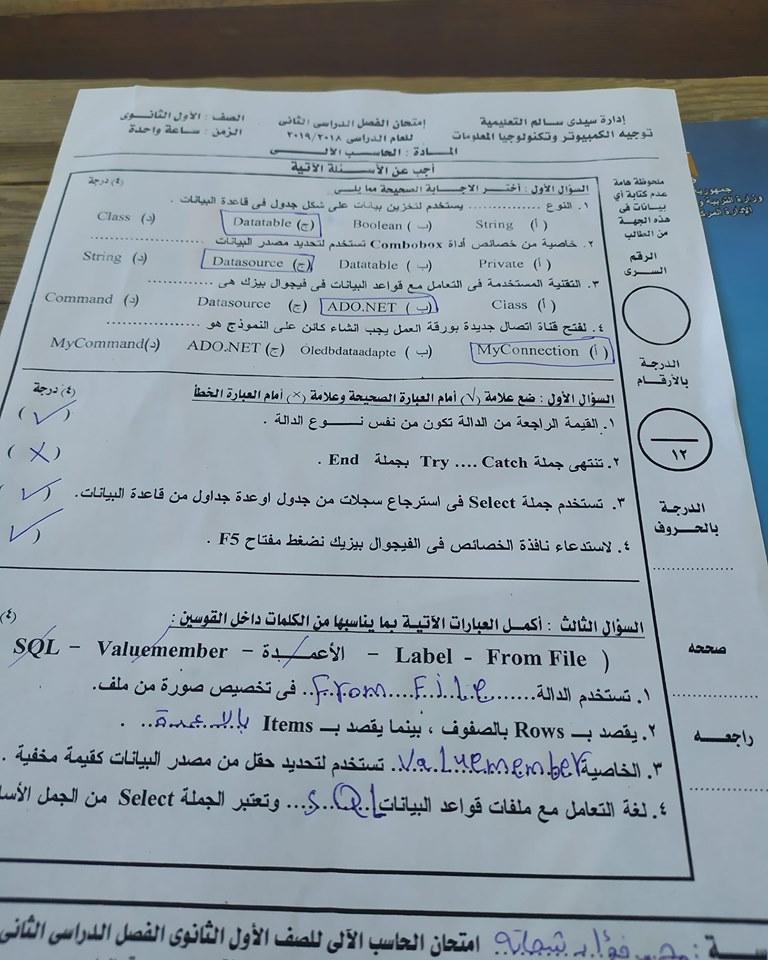 إدارة سيدى سالم التعليمية
توجيه الكمبيوتر وتكنولوجيا المعلومات
إمتحان الفصل الدراسى الثانى
للعام الدراسى ٢٠١٩/٢٠١٨
الصف : الأول الثانوى
الزمن : ساعة واحدة
المادة : الحاسب الآلى
أجب عن الأسئلة الآتية
ملحوظة هامة
عدم كتابة أي
بيانات فى
هذه الجهة
من الطالب
الرقم
السرى
الدرجة
بالأرقام
١٢
الدرجة
بالحروف
..................
صححه
..................
راجعه
..................
السؤال الأول : أختر الاجابة الصحيحة مما يلى (٤) درجة
١. النوع ............ يستخدم لتخزين بيانات على شكل جدول فى قاعدة البيانات .
(أ) String (ب) Boolean (ج) Datatable (د) Class
٢. خاصية من خصائص أداة Combobox تستخدم لتحديد مصدر البيانات ..................
(أ) Private (ب) Datatable (ج) Datasource (د) String
٣. التقنية المستخدمة فى التعامل مع قواعد البيانات فى فيجوال بيزك هى ..............
(أ) Class (ب) ADO.NET (ج) Datasource (د) Command
٤. لفتح قناة اتصال جديدة بورقة العمل يجب انشاء كائن على النموذج هو ..................
(أ) MyConnection (ب) Oledbdataadapte (ج) ADO.NET (د) MyCommand
السؤال الأول : ضع علامة (√) أمام العبارة الصحيحة وعلامة (×) أمام العبارة الخطأ (٤) درجة
١. القيمة الراجعة من الدالة تكون من نفس نوع الدالة . (✓)
٢. تنتهى جملة Try .... Catch بجملة End . (X)
٣. تستخدم جملة Select فى استرجاع سجلات من جدول اوعدة جداول من قاعدة البيانات. (✓)
٤. لاستدعاء نافذة الخصائص فى الفيجوال بيزيك نضغط مفتاح F5 . (✓)
السؤال الثالث : أكمل العبارات الآتية بما يناسبها من الكلمات داخل القوسين : (٤)
( SQL – Valuemember – الأعمدة – Label - From File
١. تستخدم الدالة......From File.. فى تخصيص صورة من ملف.
٢. يقصد بـ Rows بالصفوف ، بينما يقصد بـ Items بالاعمدة.. .
٣. الخاصية valuemember. تستخدم لتحديد حقل من مصدر البيانات كقيمة مخفية .
٤. لغة التعامل مع ملفات قواعد البيانات SQL... وتعتبر الجملة Select من الجمل الأسا
امتحان الحاسب الآلى للصف الأول الثانوى الفصل الدراسى الثانى